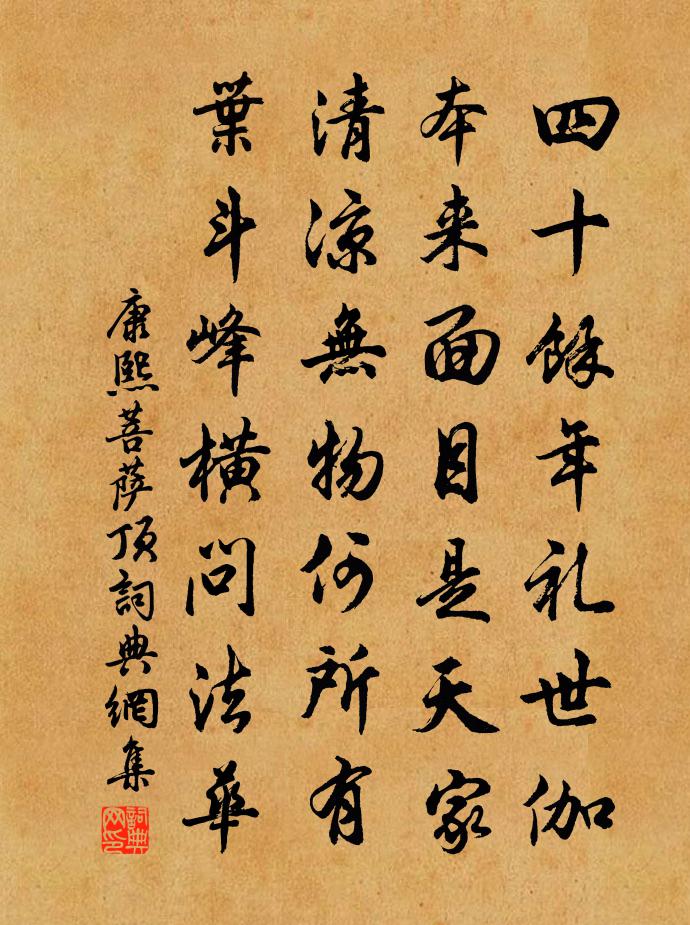 四十餘年礼世伽
本来面目是天家
清涼無物何所有
葉斗峰横問法華
康熙菩萨顶詞典網集
詞典网印